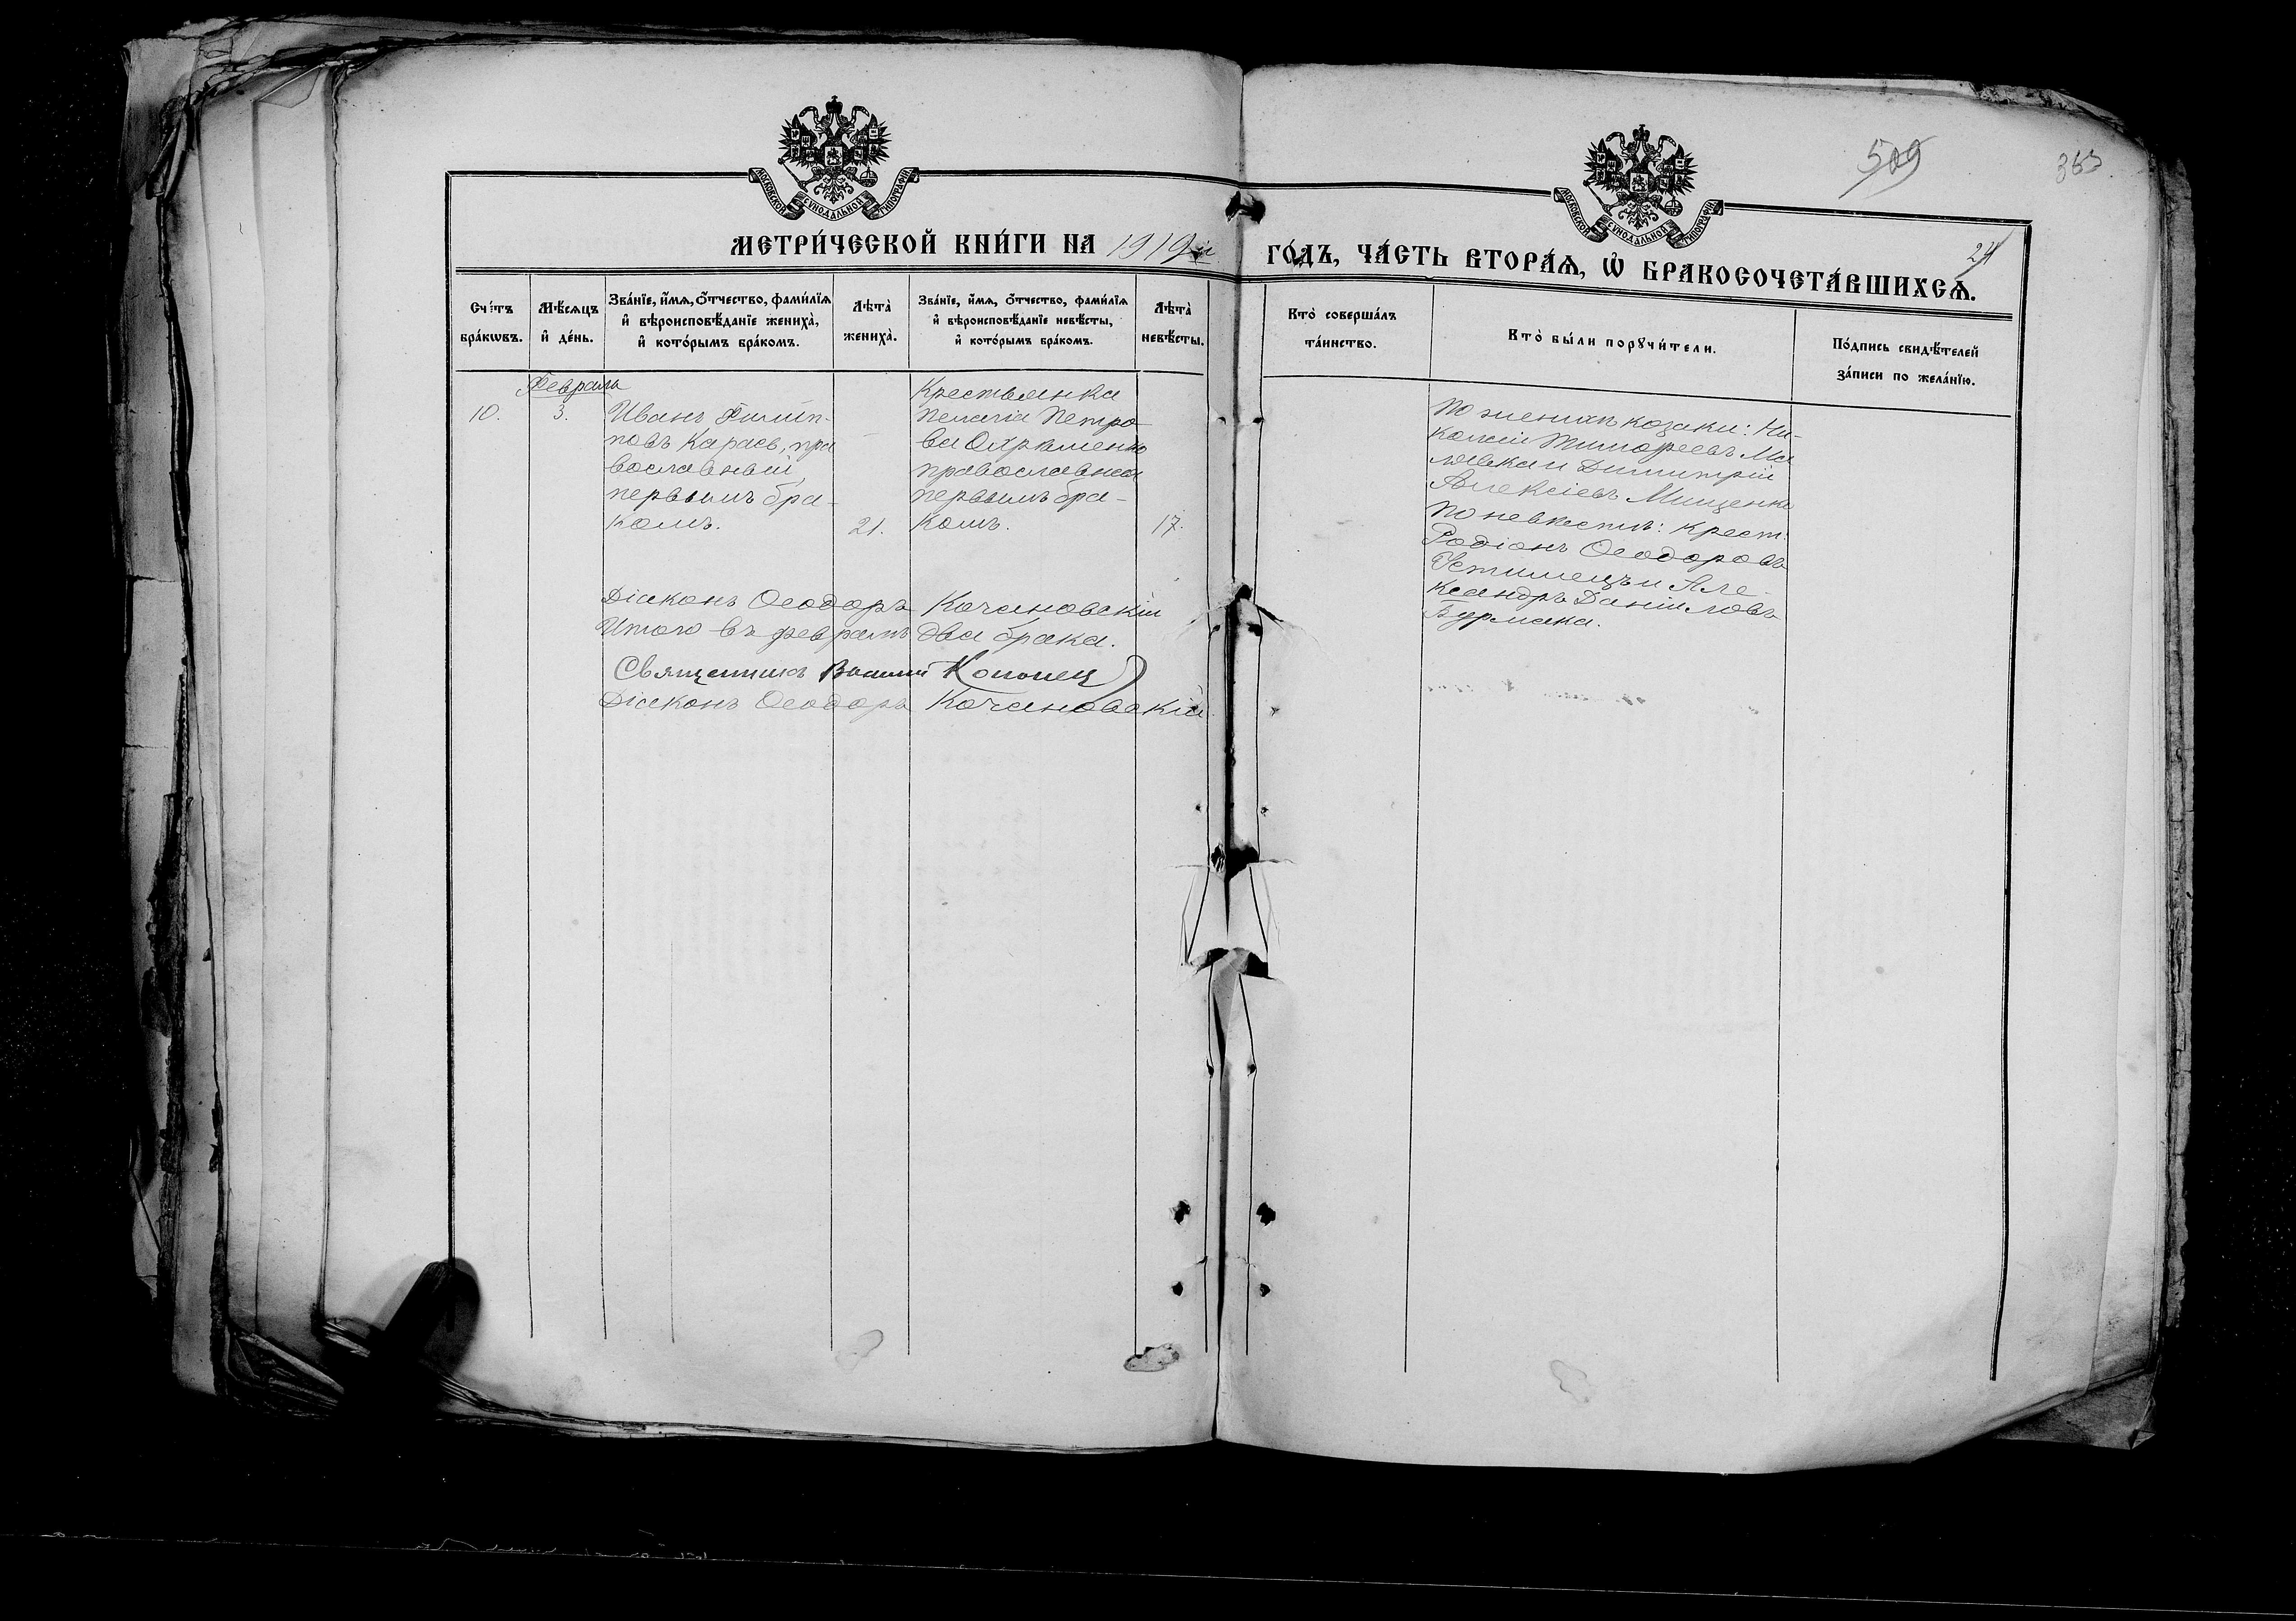 МОСКОВСКОЙ СУНОДАЛЬНОЙ ТИПОГРАФІИ
МОСКОВСКОЙ СУНОДАЛЬНОЙ ТИПОГРАФІИ
509
363
24
МЕТРИ́ЧЕСКОЙ КНИ́ГИ НА 1919й ГО́ДЪ, ЧА́СТЬ ВТОРА́Ѧ, Ѡ БРАКОСОЧЕТА́ВШИХСѦ.
Сче́тъ
бра́кѡвъ.
Мѣ́сѧцъ
и҆ де́нь.
Зва́нїе, и҆́мѧ, ѻ҆́тчество, фами́лїѧ
и҆ вѣроисповѣ́данїе жениха̀,
и҆ кото́рымъ бра́комъ.
Лѣта̀
жениха̀.
Зва́нїе, и҆́мѧ, ѻ҆́тчество, фами́лїѧ
и҆ вѣроисповѣ́данїе невѣ́сты,
и҆ кото́рымъ бра́комъ.
Лѣта̀
невѣ́сты.
Кто̀ соверша́лъ
та́инство.
Кто̀ бы́ли порꙋчи́тели.
По́дпись свидѣ́телей
за́писи по жела́нїю.
Февраль
10.
3.
Иванъ Филип-
повъ Карась, пра
вославный,
первымъ бра-
комъ.
21.
Крестьянка
Пелагія Петро-
ва Охрименко
православная
первымъ бра-
комъ.
17.
По женихѣ козаки: Ни-
колай Тимофеевъ Ма
лявка и Димитрій
Алексіевъ Мищенко
По невѣстѣ: крест.
Родіонъ Ѳеодоровъ
Устимецъ и Але-
ксандръ Даніиловъ
Бурмака.
Діаконъ Ѳеодоръ Качановскій
Итого въ февралѣ два брака.
Священникъ Василій
Діаконъ Ѳеодоръ Качановскій